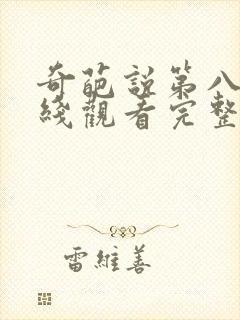 奇葩説第八
綫觀看完整
雷維善